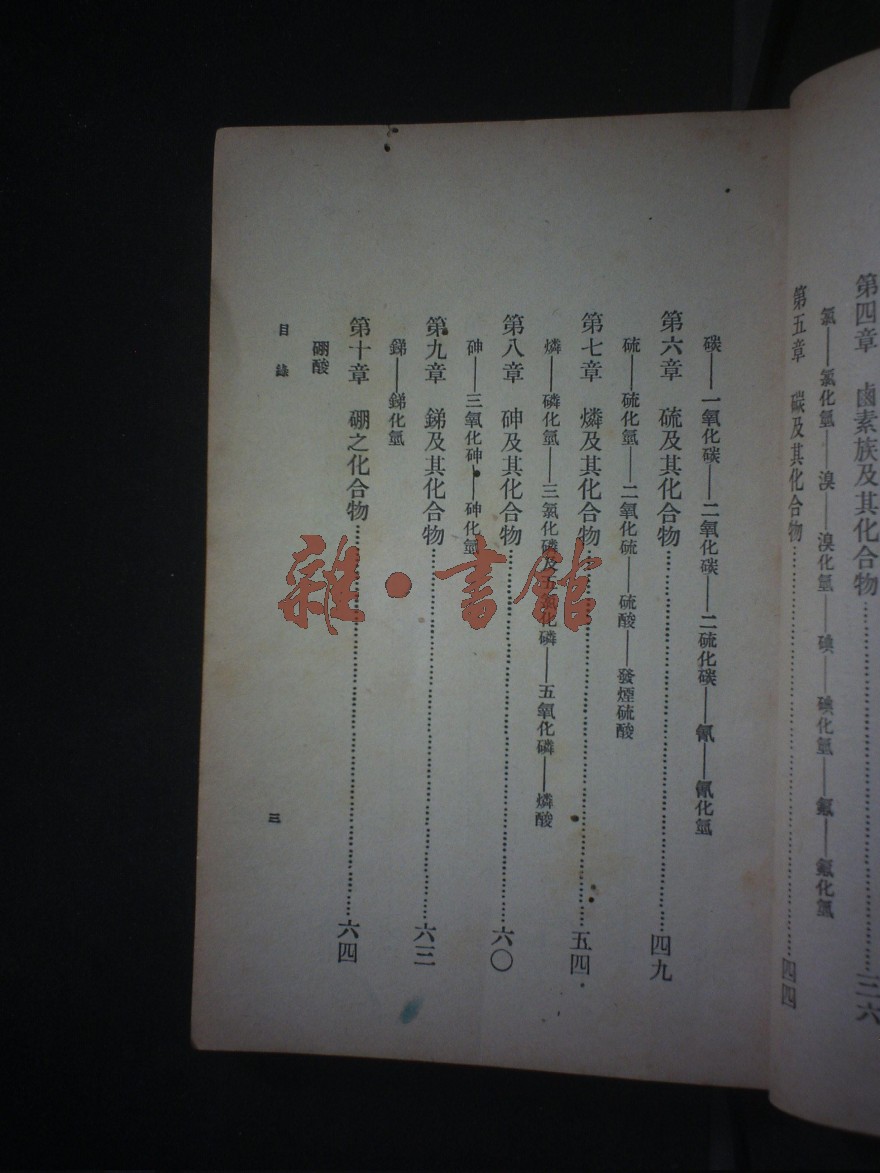 第四章　鹵素族及其化合物……三六
氯——氯化氫——溴——溴化氫——碘——碘化氫——氟——氟化氫
第五章　碳及其化合物……四四
碳——一氧化碳——二氧化碳——二硫化碳——氰——氰化氫
第六章　硫及其化合物……四九
硫——硫化氫——二氧化硫——硫酸——發煙硫酸
第七章　燐及其化合物……五四
燐——磷化氫——三氯化磷及五氯化磷——五氧化磷——燐酸
第八章　砷及其化合物……六〇
砷——三氧化砷——砷化氫
第九章　銻及其化合物……六三
銻——銻化氫
第十章　硼之化合物……六四
硼酸
目錄
三
雜·書館